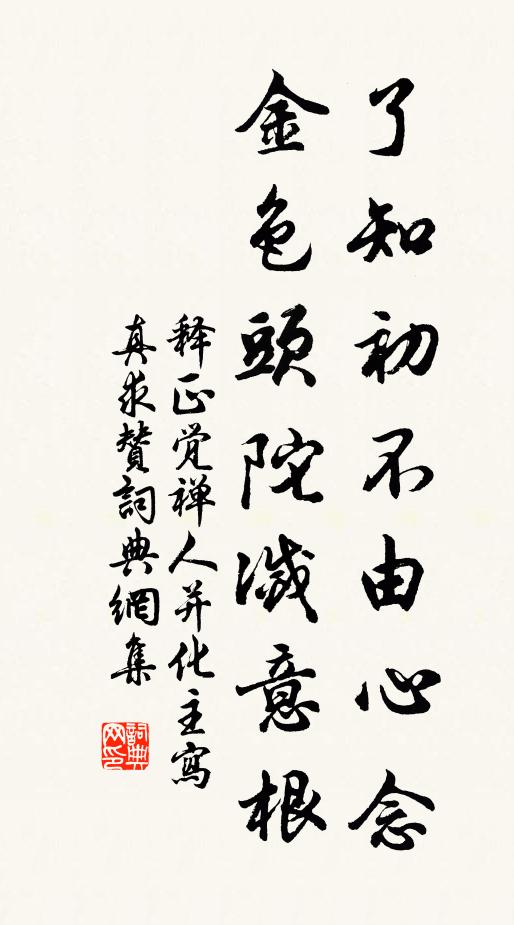 了知初不由心念
金色頭陀滅意根
释正觉禅人并化主寫
真求賛詞典網集
詞典
网印